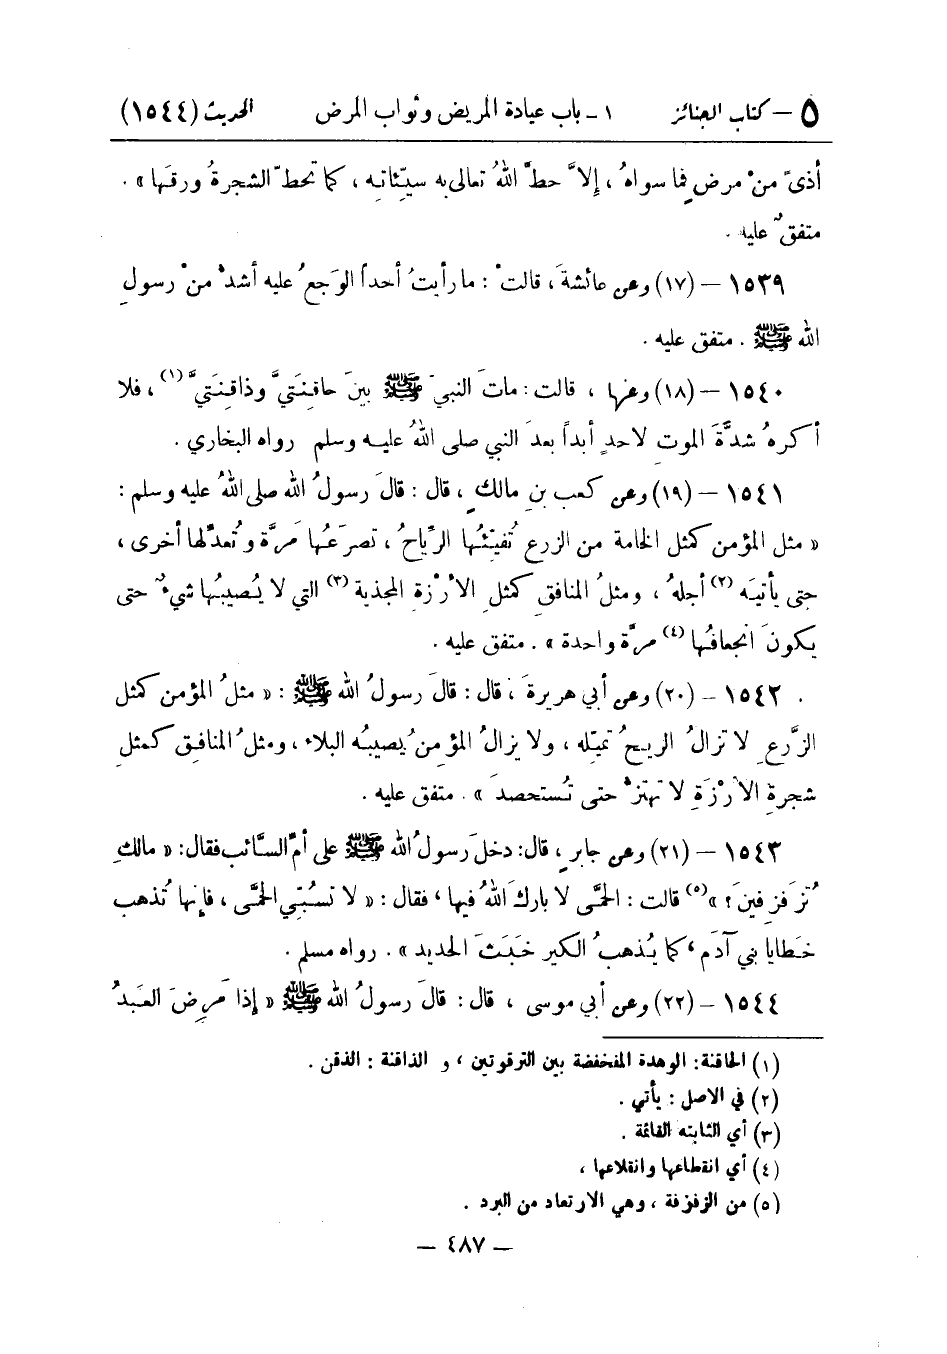 ٥ – كتاب الجنائز ١ - باب عيادة المريض وثواب المرض الحديث (١٥٤٤)
أذىً منْ مرضٍ فما سواهُ ، إلاَّ حطَّ اللهُ تعالى به سيِّئاتِه ، كما تحطّ الشجرةُ ورقَها » .
متفقٌ عليه .
١٥٣٩ – (١٧) وعن عائشةَ ، قالتْ : ما رأيتُ أحداً الوَجعُ عليه أشدُّ منْ رسولِ
الله ﷺ . متفق عليه .
١٥٤٠ – (١٨) وعنها ، قالت : ماتَ النبيّ ﷺ بينَ حاقِنَتيَّ وذاقِنَتيَّ (١) ، فلا
أكرهُ شدَّةَ الموتِ لاحدٍ أبداً بعدَ النبي صلى اللهُ عليه وسلم رواه البخاري .
١٥٤١ – (١٩) وعن كعب بنِ مالكٍ ، قال : قالَ رسولُ الله صلى اللهُ عليه وسلم :
« مثل المؤمن كمثل الخامة من الزرع تُفيّئُها الرِّياحُ ، تصرَعُها مَرَّة وتُعدّلُها أخرى ،
حتى يأتيَه (٢) أجلهُ ، ومثلُ المنافق كمثلِ الأرْزةِ المجذية (٣) التي لا يُصيبُها شيءٌ حتى
يكونَ انجعافُها (٤) مرَّة واحدة » . متفق عليه .
. ١٥٤٢ – (٢٠) وعن أبي هريرةَ ، قال : قالَ رسولُ الله ﷺ : « مثلُ المؤمن كمثل
الزَّرعِ لا تزالُ الريحُ تميّله ، ولا يزالُ المؤمنُ يصيبُه البلاء ، ومثلُ المنافِقِ كمثلِ
شجرةِ الأرْزَةِ لا تهتزُّ حتى تُستحصدَ » . متفق عليه .
١٥٤٣ – (٢١) وعن جابرٍ ، قال: دخلَ رسولُ الله ﷺ على أمِّ السَّائب فقال: « مالكِ
تُزَفزفينَ ؟ » (٥) قالت : الحمَّى لا باركَ اللهُ فيها ، فقال : « لا تسُبّي الحمَّى ، فإنها تُذهب
خطايا بني آدَم ، كما يُذهبُ الكير خبَثَ الحديد » . رواه مسلم .
١٥٤٤ – (٢٢) وعن أبي موسى ، قال : قالَ رسولُ الله ﷺ « إذا مَرِضَ العَبدُ
(١) الحاقنة: الوهدة المنخفضة بين الترقوتين ، و الذاقنة : الذقن .
(٢) في الاصل : يأتي .
(٣) أي الثابته القائمة .
(٤) أي انقطاعها وانقلاعها ،
(٥) من الزفزفة ، وهي الارتعاد من البرد .
– ٤٨٧ –